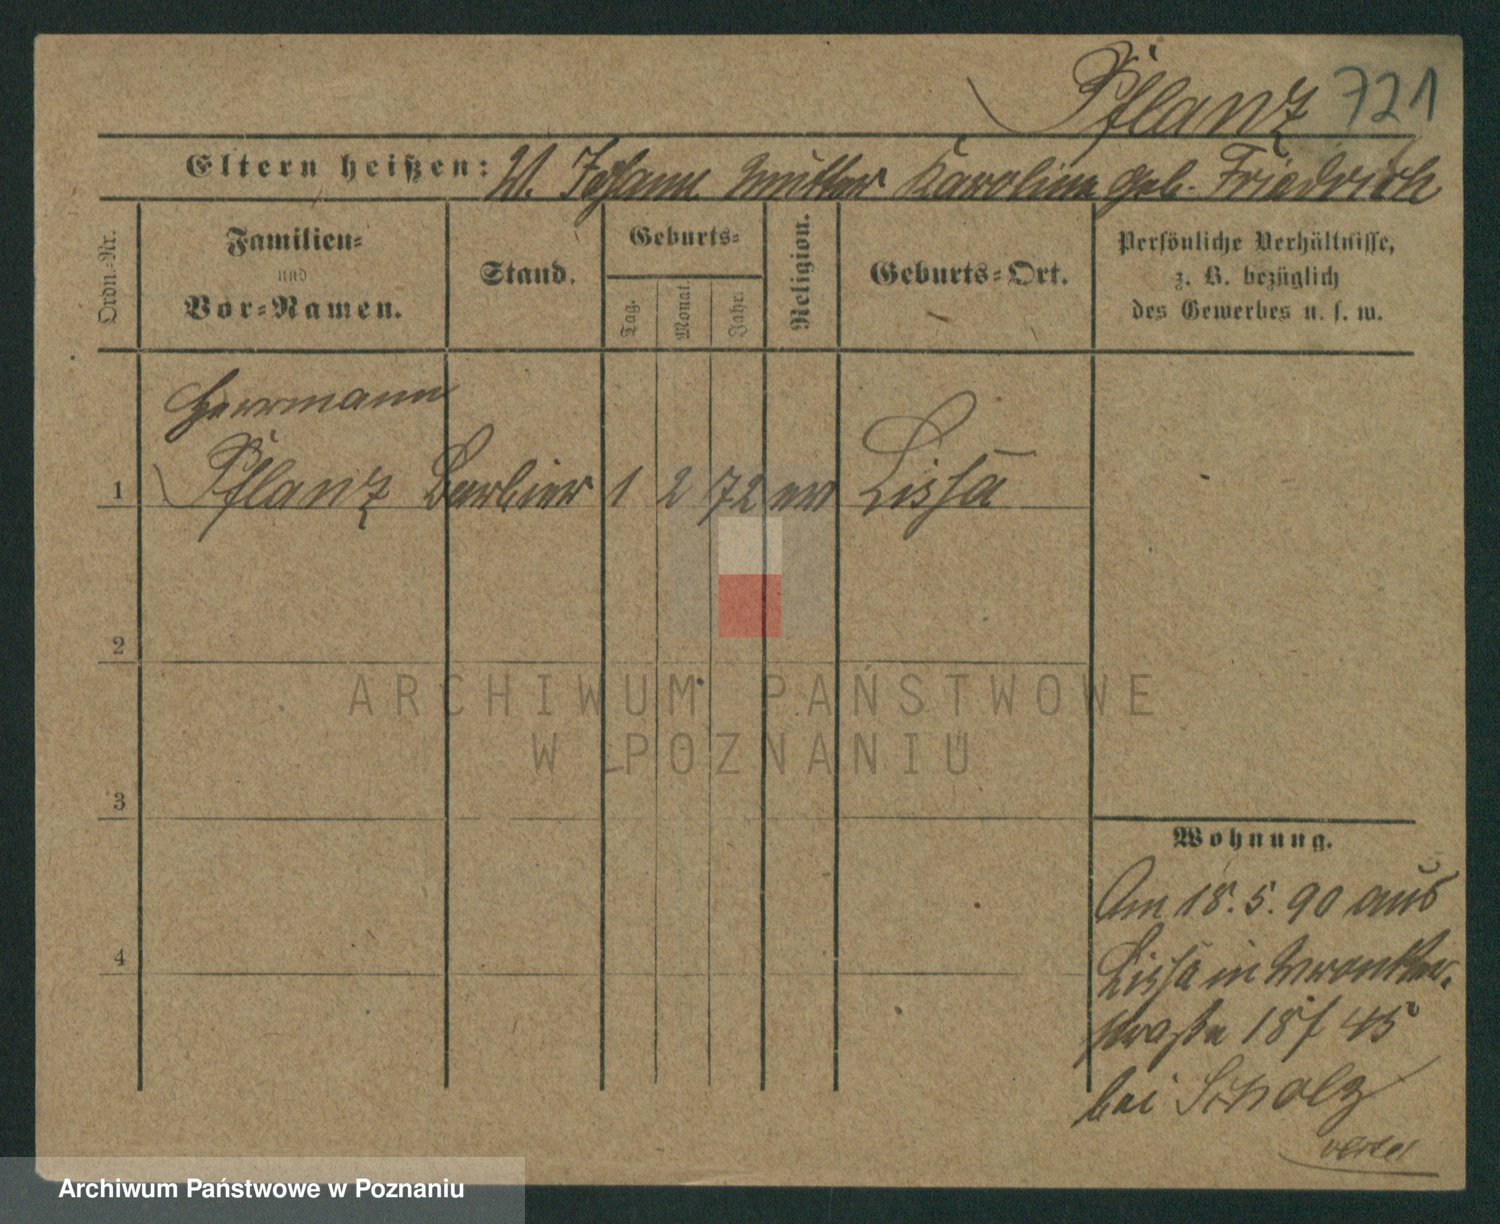 Pflanz 721
Eltern heißen: V. Johann Mutter Karoline geb. Friedrich
Ordn.-Nr.
Familien-
und
Vor-Namen.
Stand.
Geburts-
Tag.
Monat.
Jahr.
Religion.
Geburts-Ort.
Persönliche Verhältnisse,
z. B. bezüglich
des Gewerbes u. s. w.
Herrmann
1 Pflanz Barbier 1 2 72 ev Lissa
2
3
4
ARCHIWUM PAŃSTWOWE
W POZNANIU
Wohnung.
Am 18. 5. 90 aus
Lissa in Wronker-
straße 18 45
bei Scholz
Archiwum Państwowe w Poznaniu